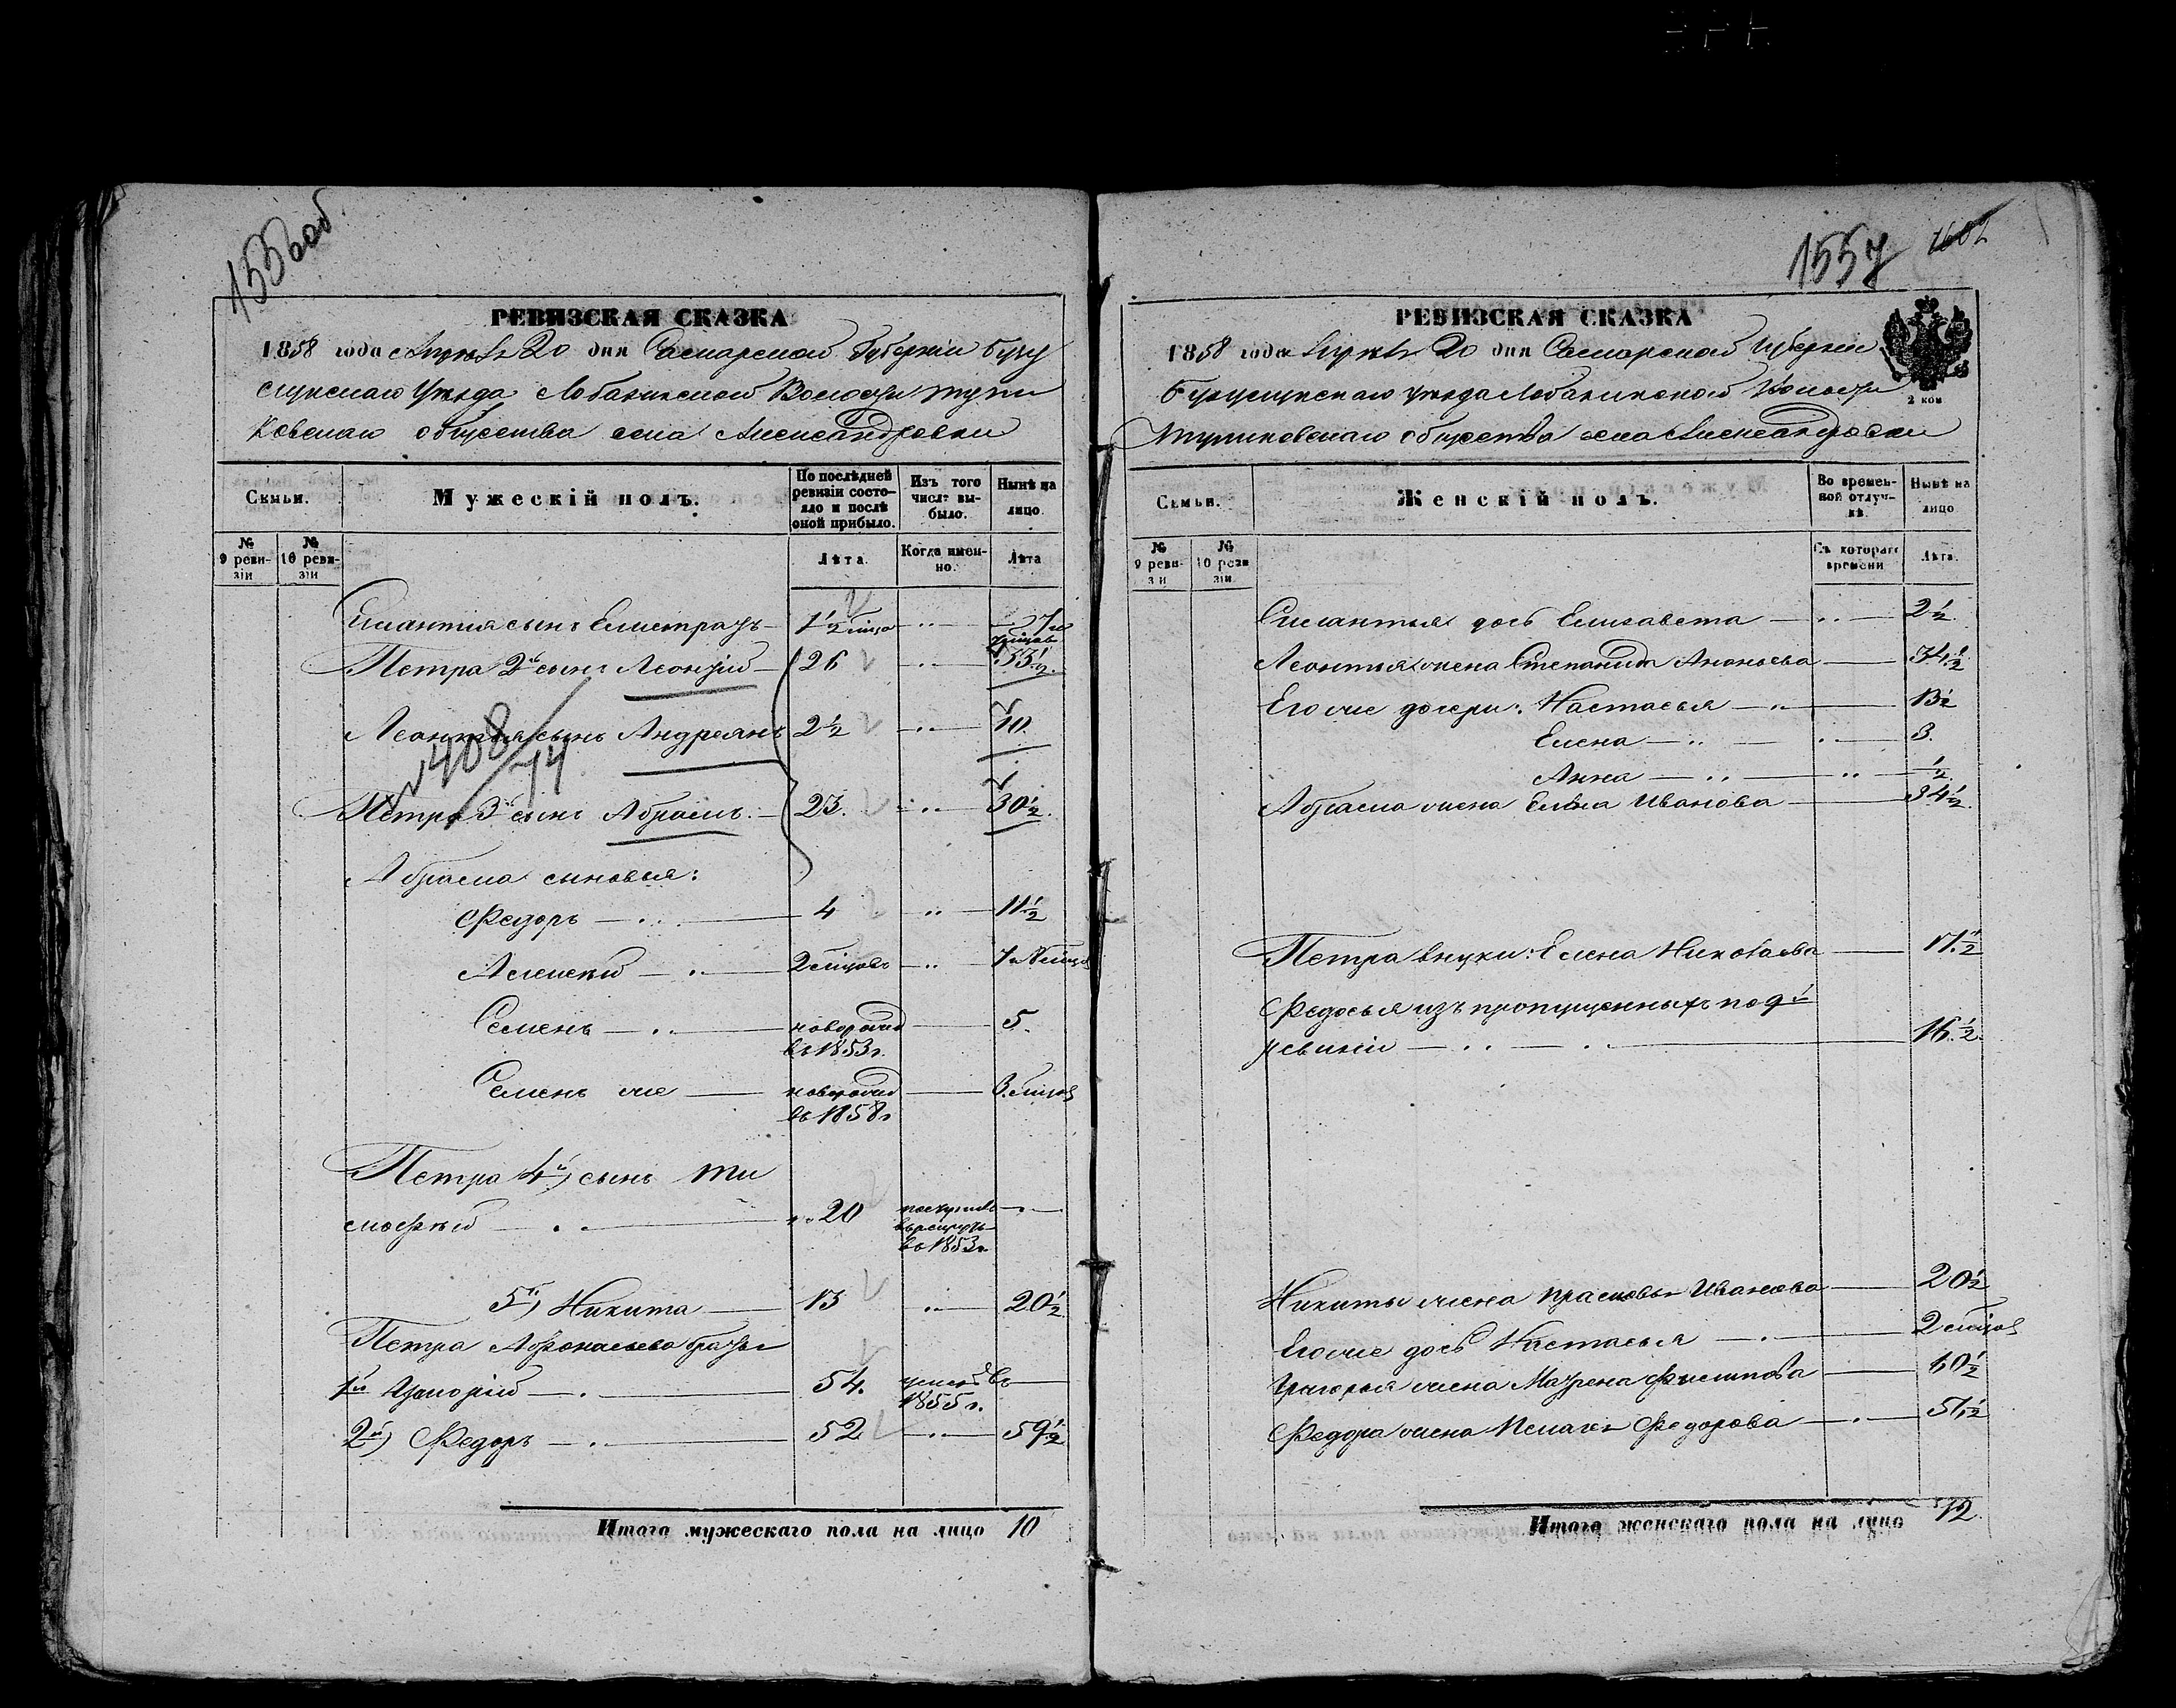 1556 об
РЕВИЗСКАЯ СКАЗКА
1858 года Апреля 20 дня Самарской Губерніи Бузу
лукскаго Уѣзда Лобазинской Волости тупи
ковскаго общества села Александровки
Семьи.
Мужескій полъ.
По послѣдней ревизіи состояло и послѣ оной прибыло.
Изъ того числа выбыло.
Нынѣ на лицо
№ 9 ревизіи
№ 10 ревизіи
Лѣта.
Когда именно.
Лѣта
сынъ Елистратъ 1/2 7
Петра 2й сынъ Леонтій 26 33 1/2
Леонтія сынъ Андреянъ 2 1/2 10
№ 408/14
Петра 3й сынъ Абрамъ 23. 30 1/2
Абрама сыновья:
Федоръ 4 11 1/2
Алексѣй 2 мѣсяцовъ
Семенъ новорожд 5.
въ 1853г.
Семенъ же новорожд 3. мѣсяц
въ 1858г
Петра 4й) сынъ Ти
мофѣй 20 въ рекруты
въ 1853г.
5й) Никита 13 20 1/2
Петра Афонасьева братья
1й Григорій 54. умеръ въ
1855г.
2й) Федоръ 52 59 1/2
Итого мужескаго пола на лицо 10
1557
РЕВИЗСКАЯ СКАЗКА
1858 года Апреля 20 дня Самарской Губерніи
Бузулукскаго уѣзда Лобазинской Волости
тупиковскаго общества села Александровки
2 коп
Семьи.
Женскій полъ.
Во временной отлучкѣ.
Нынѣ на лицо
№ 9 ревизіи
№ 10 ревизіи
Съ котораго времени
Лѣта.
дочь Елизавета 2 1/2
Леонтья жена Степанида Ананьева 34 1/2
Его же дочери: Настасья 13 1/2
Елена 3.
Анна 1/2
Абрама жена Елена Иванова 34 1/2
Петра внуки: Елена Николаева 17. 1/2
Федосья изъ пропущенныхъ по 9й
ревизіи 16. 1/2
Никиты жена Прасковья Иванова 20 1/2
Его же дочь Настасья 2 мѣсяцов
Григорья жена Матрена Филипова 60 1/2
Федора жена Пелагея Федорова 51 1/2
Итого женскаго пола на лицо 12.